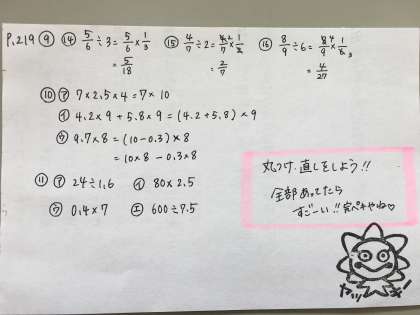 P.219 ⑨ ⑭ 5/6÷3=5/6×1/3 ⑮ 4/7÷2=4/7×1/2 ⑯ 8/9÷6=8/9×1/6
=5/18 =2/7 =4/27
⑩ ㋐ 7×2.5×4=7×10
㋑ 4.2×9+5.8×9=(4.2+5.8)×9
㋒ 9.7×8=(10-0.3)×8
=10×8-0.3×8
⑪ ㋐ 24÷1.6 ㋑ 80×2.5
㋒ 0.4×7 ㋓ 600÷7.5
丸つけ、直しをしよう!!
全部あってたら
すごーい!!完ペキやね♡